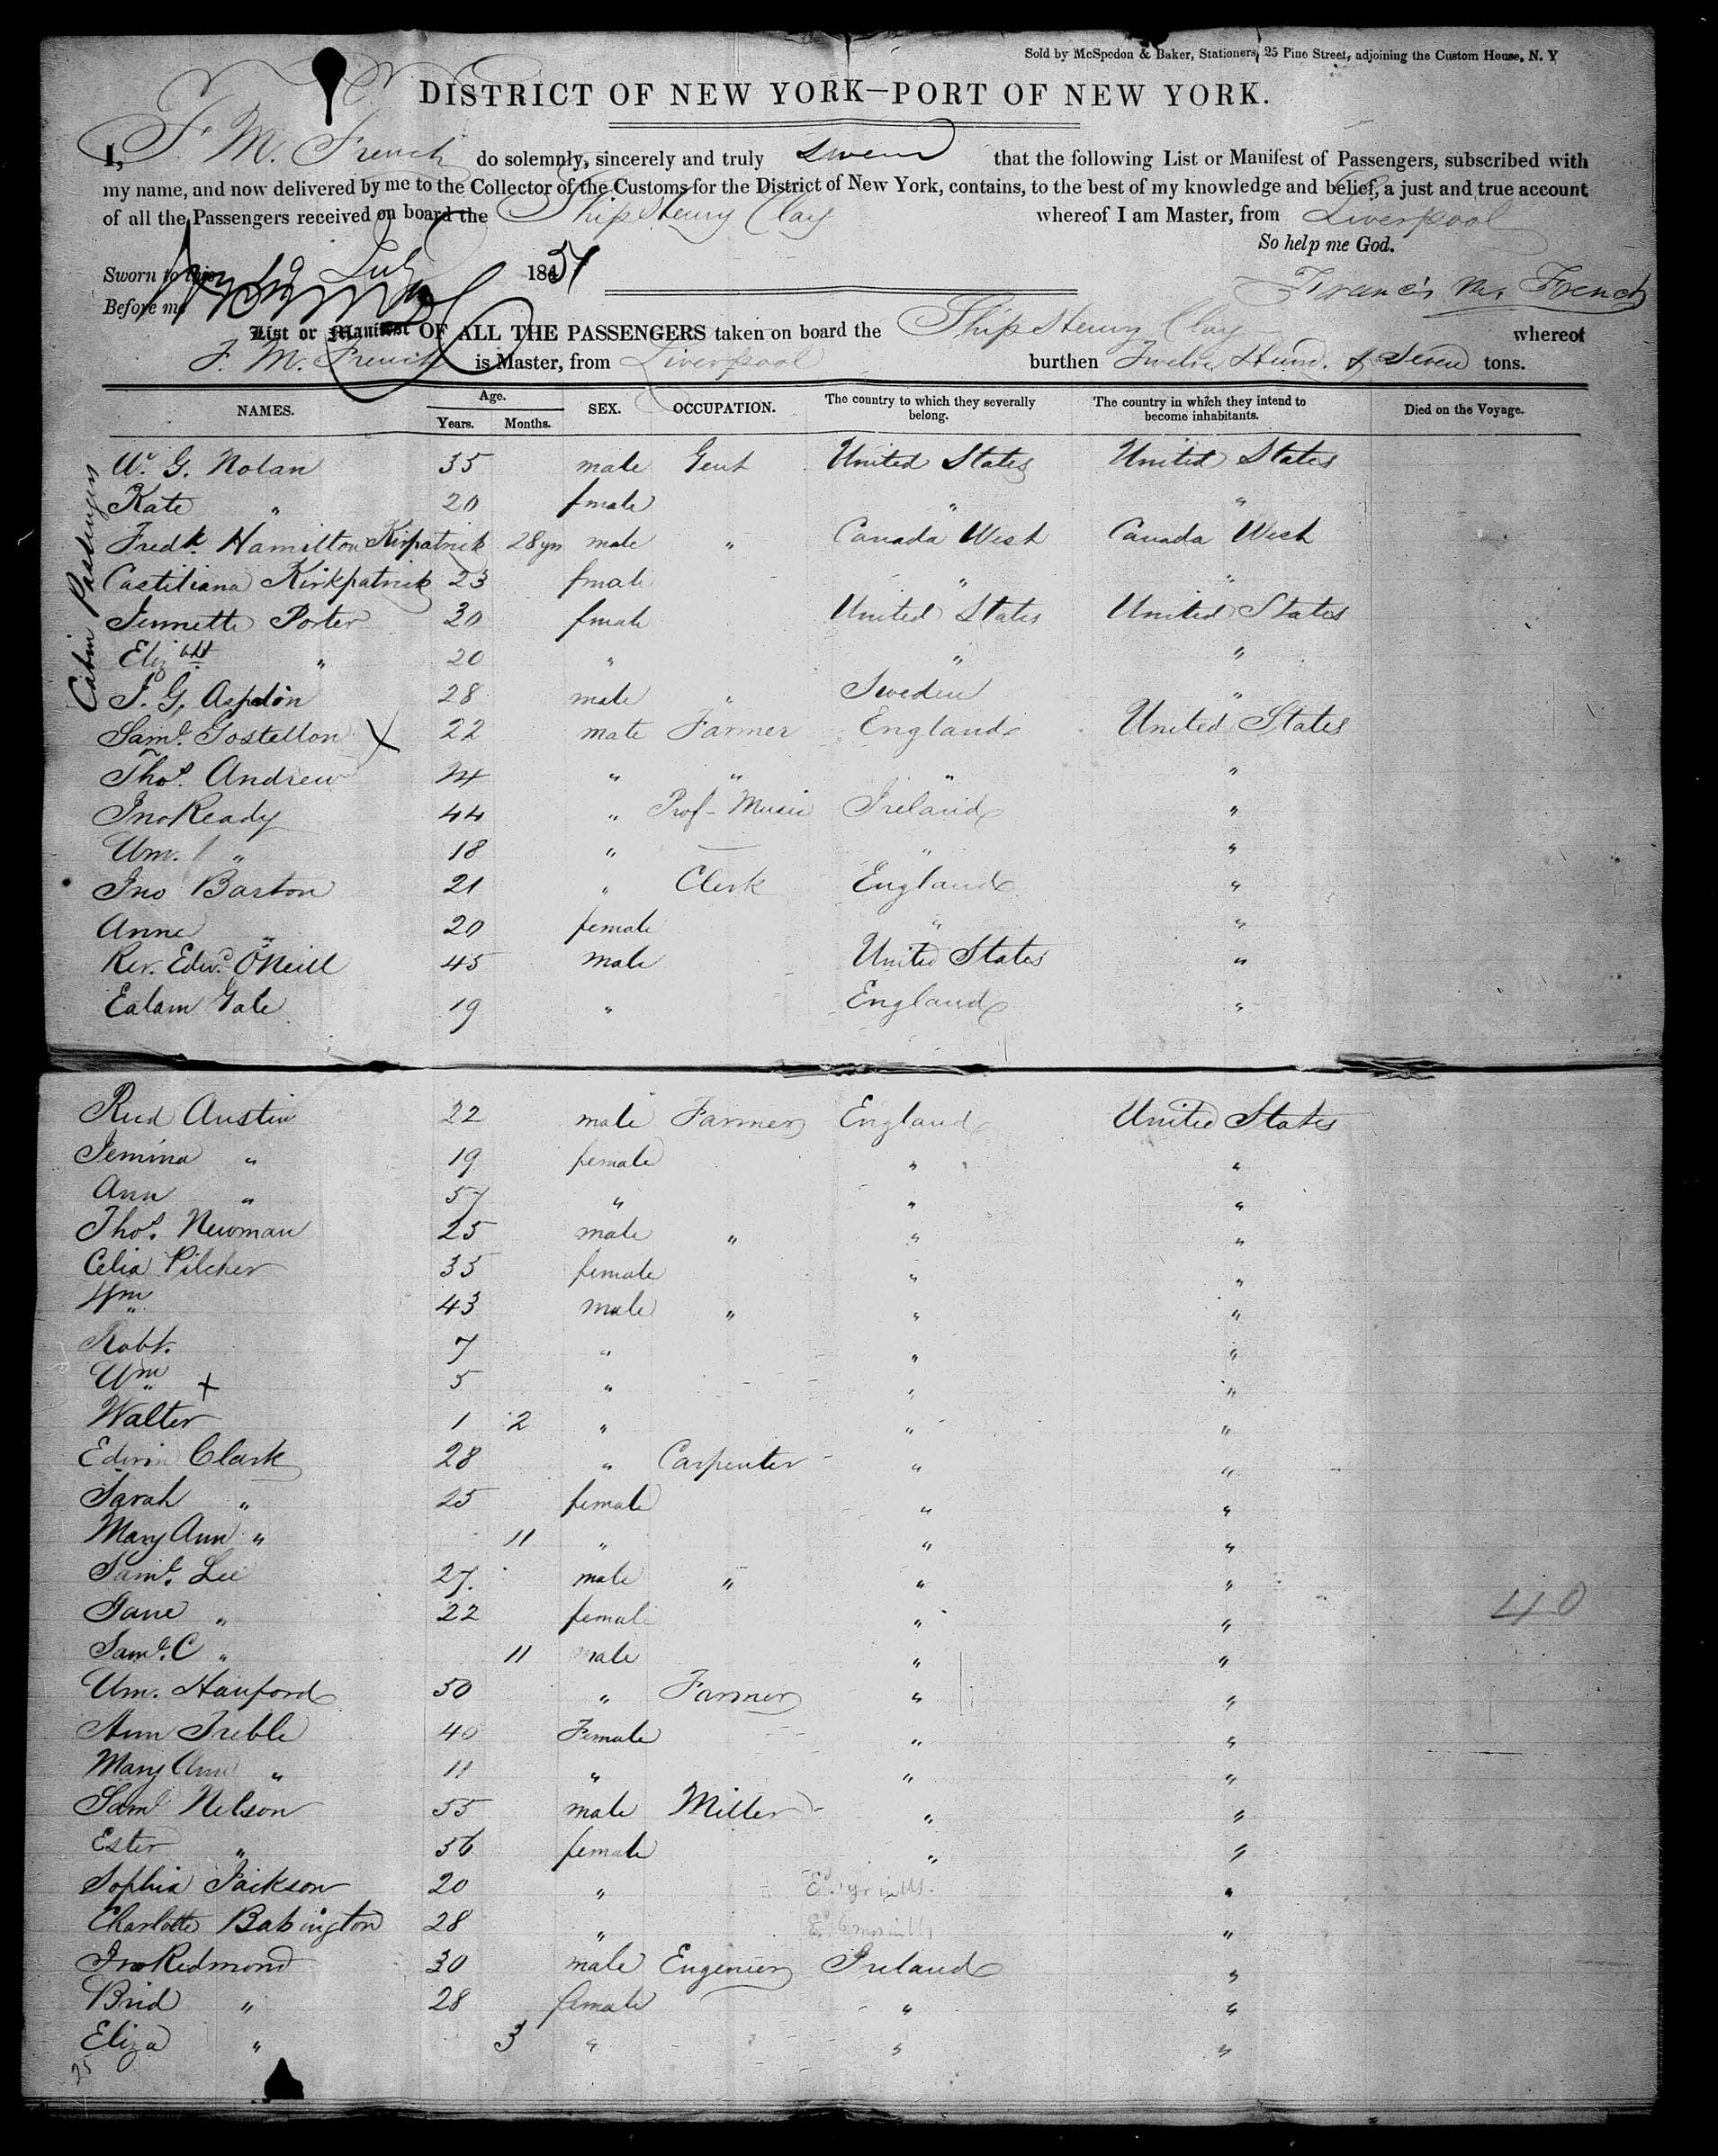 Sold by McSpedon & Baker, Stationers, 25 Pine Street, adjoining the Custom House, N. Y
DISTRICT OF NEW YORK—PORT OF NEW YORK.
I, F. M. French do solemnly, sincerely and truly swear that the following List or Manifest of Passengers, subscribed with
my name, and now delivered by me to the Collector of the Customs for the District of New York, contains, to the best of my knowledge and belief, a just and true account
of all the Passengers received on board the Ship Henry Clay whereof I am Master, from Liverpool
So help me God.
Sworn to this 19 July 1851
Francis M. French
Before me
List or Manifest OF ALL THE PASSENGERS taken on board the Ship Henry Clay whereof
F. M. French is Master, from Liverpool burthen Twelve Hund. & Seven tons.
NAMES. Age. Years. Months. SEX. OCCUPATION. The country to which they severally belong. The country in which they intend to become inhabitants. Died on the Voyage.
Cabin Passengers
W. G. Nolan 35 male Gent United States United States
Kate " 20 fmale " "
Fredk. Hamilton Kirpatrick 28 yrs male " Canada West Canada West
Castiliana Kirkpatrick 23 fmale " "
Jennette Porter 30 fmale United States United States
Elizbht " 20 " " "
J. G. Aspelon 28 male " Sweden "
Saml. Gostellon X 22 male Farmer England United States
Thos. Andrew 24 " " " "
Jno Ready 44 " Prof - Music Ireland "
Wm. " 18 " — " "
Jno Barton 21 " Clerk England "
Anne " 20 female " "
Rev. Edwd. O'Neill 45 male United States "
Ealam Gale 19 " England "
Rud Austin 22 male Farmer England United States
Jemina " 19 female " "
Ann " 57 " " "
Thos. Newman 25 male " " "
Celia Pilcher 35 female " "
Wm " 43 male " " "
Robt. 7 " " "
Wm " X 5 " " "
Walter 1 2 " " "
Edwin Clark 28 " Carpenter " "
Sarah " 25 female " "
Mary Ann " 11 " " "
Saml. Lee 27. male " " "
Jane " 22 female " "
40
Saml. C " 11 male " "
Wm. Hanford 50 " Farmer " "
Ann Treble 40 Female " "
Mary Ann " 11 " " "
Saml Nelson 55 male Miller " "
Ester " 56 female " "
Sophia Jackson 20 " "
Charlotte Babington 28 " "
Jno Redmond 30 male Engenier Ireland "
Brid " 28 female " "
Eliza " 3 " " "
25